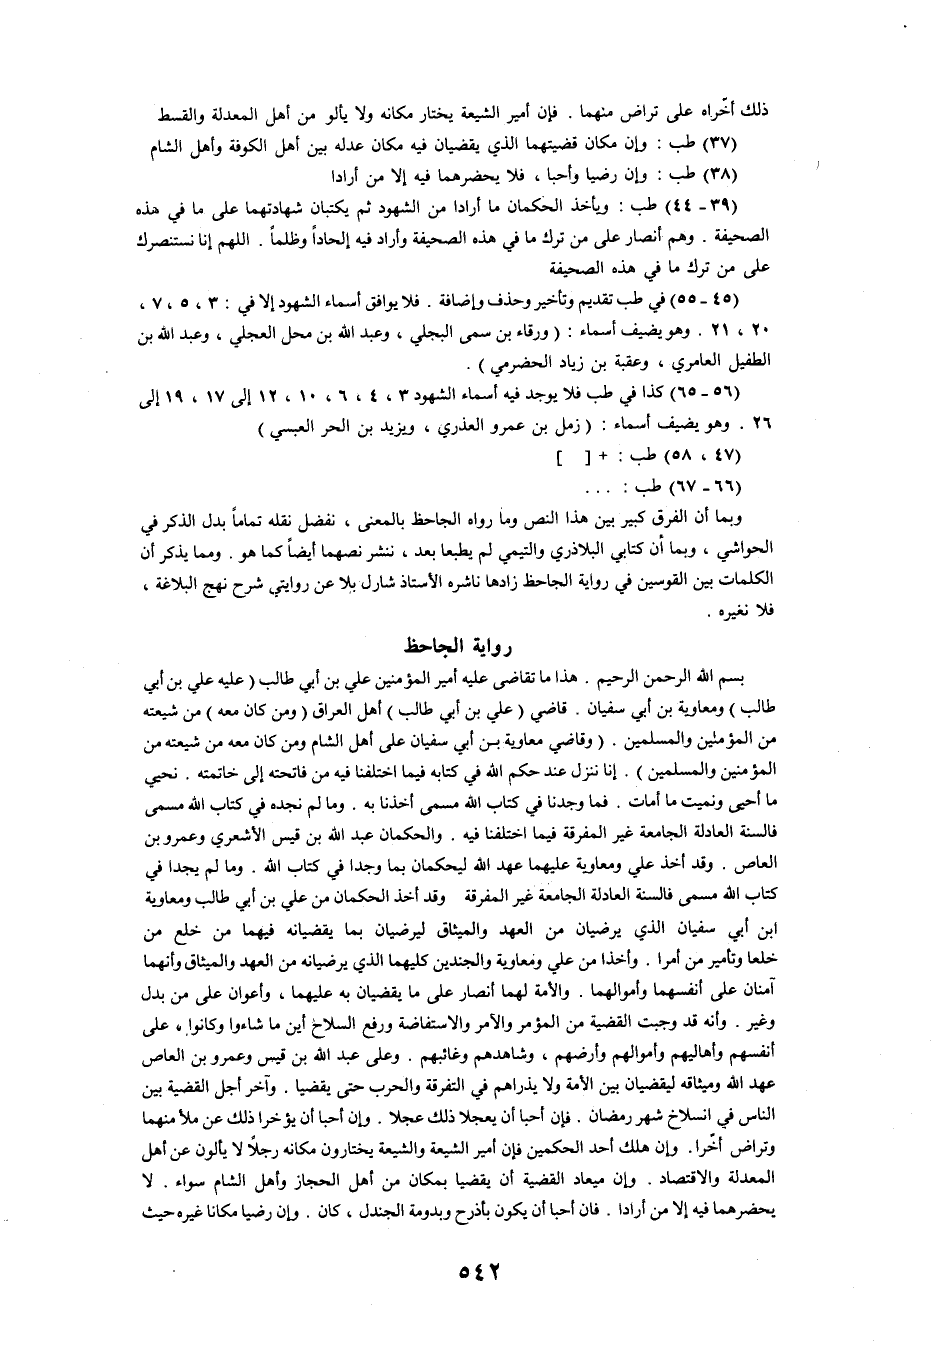 ذلك أخّراه على تراض منهما . فإن أمير الشيعة يختار مكانه ولا يألو من أهل المعدلة والقسط
(٣٧) طب : وإن مكان قضيتهما الذي يقضيان فيه مكان عدله بين أهل الكوفة وأهل الشام
(٣٨) طب : وإن رضيا وأحبا ، فلا يحضرهما فيه إلا من أرادا
(٣٩ـ ٤٤) طب : ويأخذ الحكمان ما أرادا من الشهود ثم يكتبان شهادتهما على ما في هذه
الصحيفة . وهم أنصار على من ترك ما في هذه الصحيفة وأراد فيه إلحاداً وظلماً . اللهم إنا نستنصرك
على من ترك ما في هذه الصحيفة
(٤٥ ـ ٥٥) في طب تقديم وتأخير وحذف وإضافة . فلا يوافق أسماء الشهود إلا في : ٣ ، ٥ ، ٧ ،
٢٠ ، ٢١ . وهو يضيف أسماء : ( ورقاء بن سمى البجلي ، وعبد الله بن محل العجلي ، وعبد الله بن
الطفيل العامري ، وعقبة بن زياد الحضرمي ) .
(٥٦ ـ ٦٥) كذا في طب فلا يوجد فيه أسماء الشهود ٣ ، ٤ ، ٦ ، ١٠ ، ١٢ إلى ١٧ ، ١٩ إلى
٢٦ . وهو يضيف أسماء : ( زمل بن عمرو العذري ، ويزيد بن الحر العبسي )
(٤٧ ، ٥٨) طب : + [ ]
(٦٦ـ ٦٧) طب : . . .
وبما أن الفرق كبير بين هذا النص وما رواه الجاحظ بالمعنى ، نفضل نقله تماماً بدل الذكر في
الحواشي ، وبما أن كتابي البلاذري والتيمي لم يطبعا بعد ، ننشر نصهما أيضاً كما هو . ومما يذكر أن
الكلمات بين القوسين في رواية الجاحظ زادها ناشره الأستاذ شارل بلا عن روايتي شرح نهج البلاغة ،
فلا نغيره .
رواية الجاحظ
بسم الله الرحمن الرحيم . هذا ما تقاضى عليه أمير المؤمنين علي بن أبي طالب ( عليه علي بن أبي
طالب ) ومعاوية بن أبي سفيان . قاضي ( علي بن أبي طالب ) أهل العراق ( ومن كان معه ) من شيعته
من المؤمنين والمسلمين . ( وقاضي معاوية بن أبي سفيان على أهل الشام ومن كان معه من شيعته من
المؤمنين والمسلمين ) . إنا ننزل عند حكم الله في كتابه فيما اختلفنا فيه من فاتحته إلى خاتمته . نحيي
ما أحيى ونميت ما أمات . فما وجدنا في كتاب الله مسمى أخذنا به . وما لم نجده في كتاب الله مسمى
فالسنة العادلة الجامعة غير المفرقة فيما اختلفنا فيه . والحكمان عبد الله بن قيس الأشعري وعمرو بن
العاص . وقد أخذ علي ومعاوية عليهما عهد الله ليحكمان بما وجدا في كتاب الله . وما لم يجدا في
كتاب الله مسمى فالسنة العادلة الجامعة غير المفرقة وقد أخذ الحكمان من علي بن أبي طالب ومعاوية
ابن أبي سفيان الذي يرضيان من العهد والميثاق ليرضيان بما يقضيانه فيهما من خلع من
خلعا وتأمير من أمرا . وأخذا من علي ومعاوية والجندين كليهما الذي يرضيانه من العهد والميثاق وأنهما
آمنان على أنفسهما وأموالهما . والأمة لهما أنصار على ما يقضيان به عليهما ، وأعوان على من بدل
وغير . وأنه قد وجبت القضية من المؤمر والآمر والاستفاضة ورفع السلاح أين ما شاءوا وكانوا ، على
أنفسهم وأهاليهم وأموالهم وأرضهم ، وشاهدهم وغائبهم . وعلى عبد الله بن قيس وعمرو بن العاص
عهد الله وميثاقه ليقضيان بين الأمة ولا يذراهم في التفرقة والحرب حتى يقضيا . وآخر أجل القضية بين
الناس في انسلاخ شهر رمضان . فإن أحبا أن يعجلا ذلك عجلا . وإن أحبا أن يؤخرا ذلك عن ملأ منهما
وتراض أخّرا. وإن هلك أحد الحكمين فإن أمير الشيعة والشيعة يختارون مكانه رجلاً لا يألون عن أهل
المعدلة والاقتصاد . وإن ميعاد القضية أن يقضيا بمكان من أهل الحجاز وأهل الشام سواء . لا
يحضرهما فيه إلا من أرادا . فان أحبا أن يكون بأذرح وبدومة الجندل ، كان . وإن رضيا مكانا غيره حيث
٥٤٢